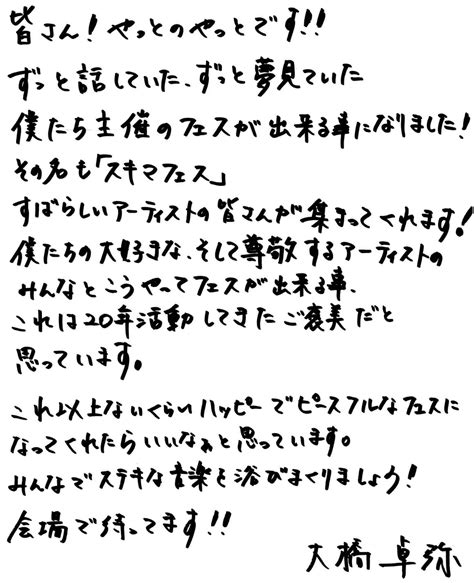 皆さん！やっとのやっとです!!
ずっと話していた、ずっと夢見ていた
僕たち主催のフェスが出来る事になりました！
その名も「スキマフェス」
すばらしいアーティストの皆さんが集まってくれます！
僕たちの大好きな、そして尊敬するアーティストの
みんなとこうやってフェスが出来る事、
これは20年活動してきたご褒美だと
思っています。
これ以上ないくらいハッピーでピースフルなフェスに
なってくれたらいいなぁと思っています。
みんなでステキな音楽を浴びまくりましょう！
会場で待ってます!!
大橋卓弥